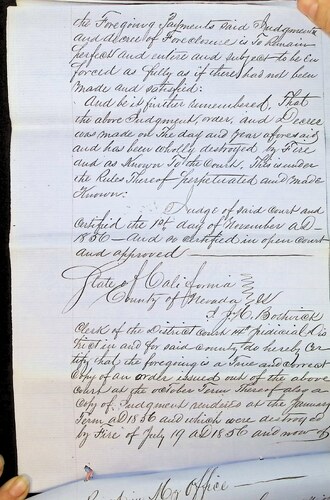 the Foregoing Payments said Judgment
and decree of Foreclosure is To Remain
perfect and entire and subject to be En
forced as fully as if there had not been
made and satisfied:
And be it further remembered, That
the above Judgment, order, and Decree
was made on The day and Year aforesaid
and has been wholly destroyed by Fire
and as Known To the Court, This is under
the Rules Thereof perpetuated and made
Known.
Judge of said Court and
Certified the 1st day of November AD-
1856 - And so certified in open Court
and approved
State of California
County of Nevada
I J. H. Bostwick
Clerk of the District Court 14th Judicial Dis
trict in and for said County do hereby Cer
tify that the foregoing is a True and correct
Copy of an order issued out of the above
Court at the October Term Thereof also a
Copy of Judgment rendered at the January
Term AD 1856 and which were destroyed
by Fire of July 19 AD 1856 and now of
my Office